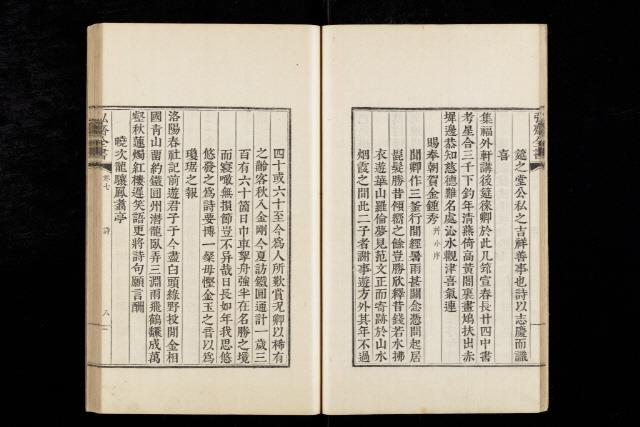 筵之堂公私之吉祥善事也詩以志慶而識
喜
集福外軒講後筵徠卿於此几筵宣春長廿四中書
考星合三千下鈞年清燕倚高黃閣裏畫鳩扶出赤
墀邊恭知慈德難名處沁水觀津喜氣連
賜奉朝賀金鍾秀 幷小序
聞卿作三釜行間經暑雨甚關念憑問起居
髭髮勝昔傾嚮之餘豈勝欣釋昔錢若水拂
衣遊華山羅倫夢見范文正而寄跡於山水
烟霞之間此二子者謝事遊方外其年不過
四十或六十至今爲人所歎賞況卿以稀有
之齡客秋入金剛今夏訪鐵圓通計一歲三
百有六十箇日巾車挐舟強半在名勝之境
而寢噉無損節豈不异哉日長如年我思悠
悠發之爲詩要博一粲毋慳金玉之音以爲
瓊琚之報
洛陽春社記前遊君子于今盡白頭綠野投閒金相
國靑山留約鐵圓州潛龍臥弄三淵雨飛鶴飜成萬
壑秋蓮燭紅樓遲笑語更將詩句願言酬
曉次龍驤鳳翥亭
弘齋全書
卷七
詩
八
弘齋全書